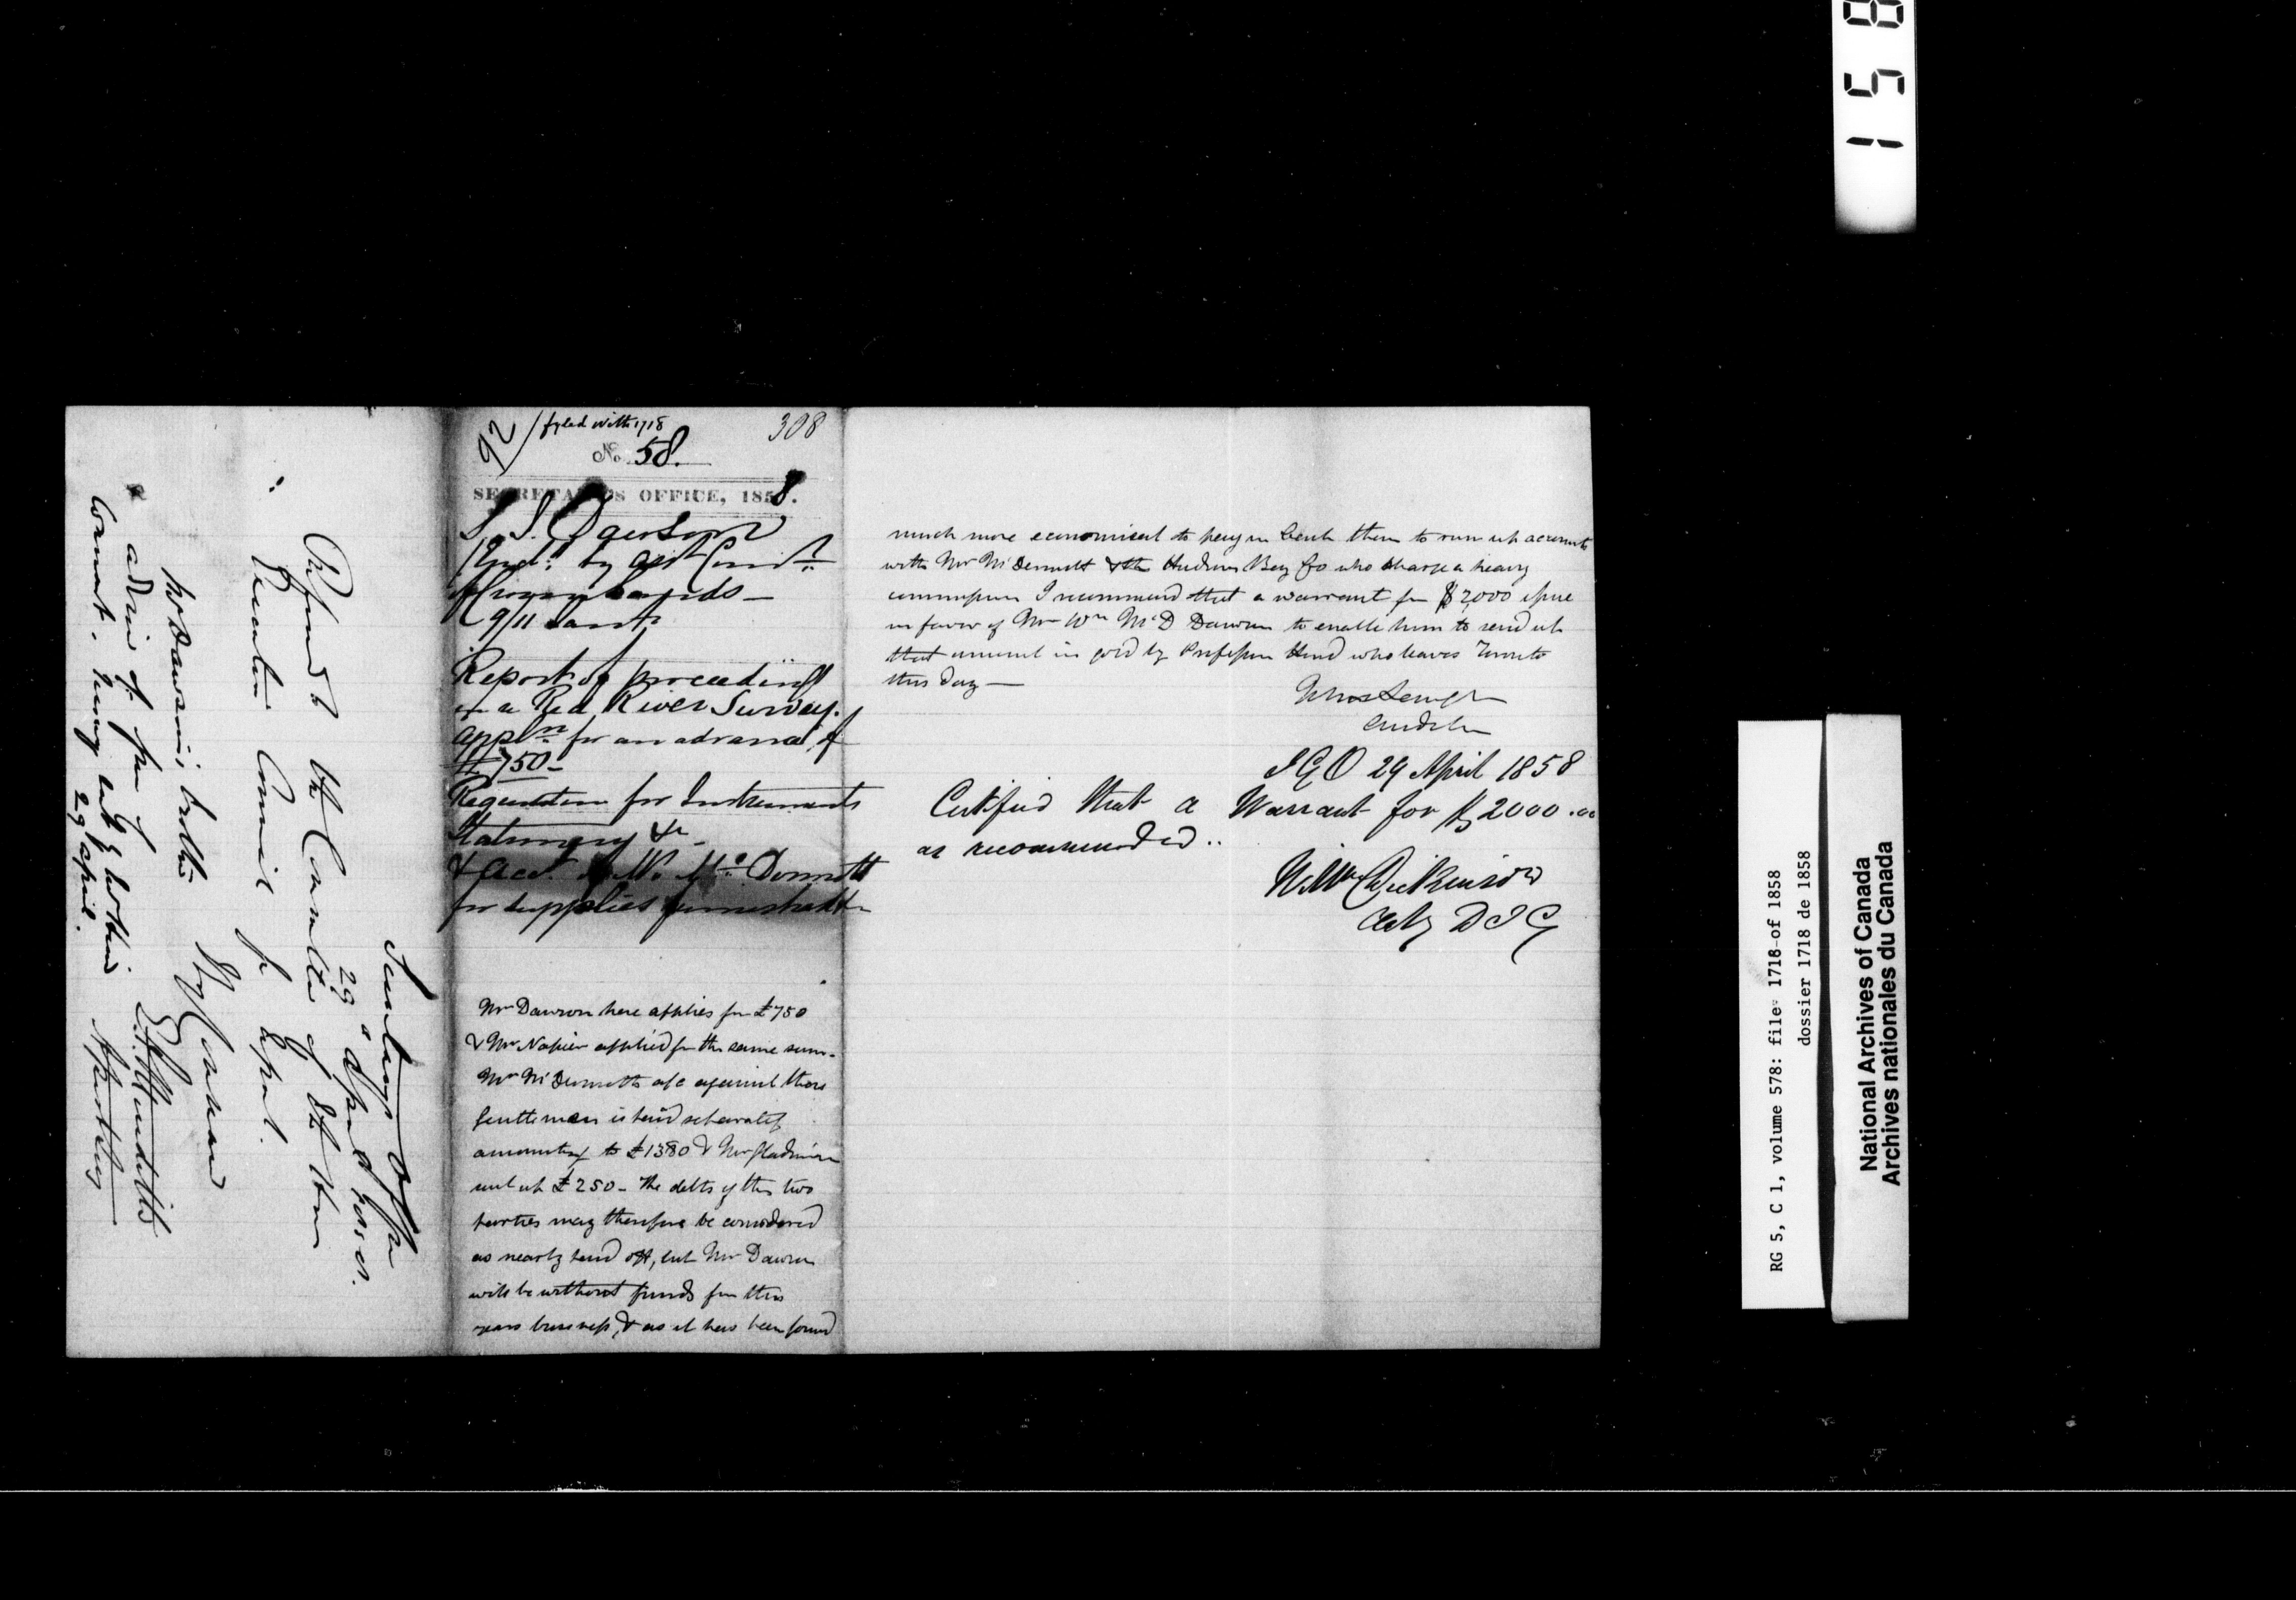 92 / fyled with 1718
308
No. 58.
SECRETARY'S OFFICE, 1858.
S. J. Dawson
by asst Comr
of Crown Lands —
9/11 Lands
Report of proceedings
on a Red River Survey.
appln for an advance of
£750 —
Requisition for Instruments
Stationery &c —
& Acct. McDermott
for supplies furnished &c
Mr Dawson here applies for £750
& Mr Napier applied for the same sum.
Mr McDermotts a/c against these
Gentlemen is paid separately
amounting to £1380 & Mr Gladman
sent up £250 — The debts of the two
parties may therefore be considered
as nearly paid off, but Mr Dawson
will be without funds for this
years business, & as it has been found
much more economical to pay in Cash than to run up accounts
with Mr McDermott & the Hudsons Bay Co who charge a heavy
commission I recommend that a warrant for $2,000 issue
in favor of Mr Wm McD Dawson to enable him to send up
that amount in gold by Professor Hind who leaves Toronto
this day —
John Langton
Auditor
I G O 29 April 1858
Certified that a Warrant for $2000.00
as recommended..
Wm Dickinson
Actg D I G
Secretarys Office
29 April 1858.
Referred to the Committee of the Hon
Executive Council for report.
By Command
E. A. Meredith
Asst Secy
Mr Dawson's brother
29 April.
RG 5, C 1, volume 578: file 1718 of 1858
dossier 1718 de 1858
National Archives of Canada
Archives nationales du Canada
158